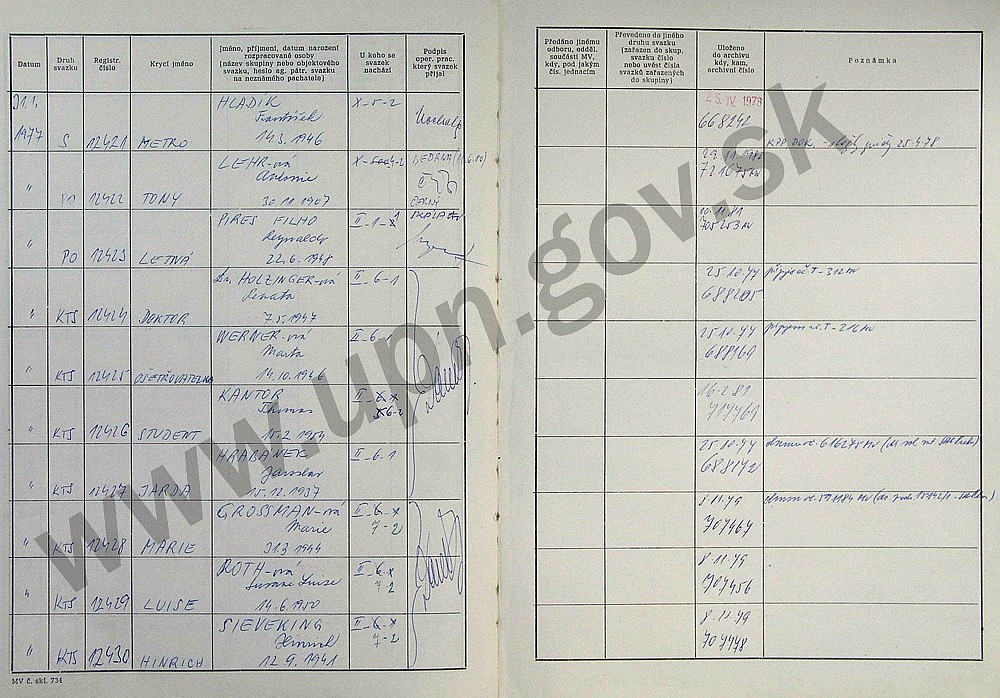 Datum
Druh svazku
Registr. číslo
Krycí jméno
Jméno, příjmení, datum narození
rozpracované osoby
(název skupiny nebo objektového
svazku, heslo ag. pátr. svazku
na neznámého pachatele)
U koho se
svazek
nachází
Podpis
oper. prac.
který svazek
přijal
Předáno jinému
odboru, odděl.
součásti MV,
kdy, pod jakým
čís. jednacím
Převedeno do jiného
druhu svazku
(zařazen do skup.
svazku číslo
nebo uvést čísla
svazků zařazených
do skupiny)
Uloženo
do archivu
kdy, kam,
archivní číslo
Poznámka
31.1. HLADÍK X-5-2 25. IV. 1978
František 668242
1977 S 12421 METRO 14.3.1946 25.4.78
LEHR-ová
Antonie 721675
" PO 12422 TONY 30.11.1907 ČERNÝ
PIRES FILHO 10.11.81
Reynaldo 705253
" PO 12423 LETNÁ 22.6.1948
Dr. HOLZINGER-ová II-6-1 25.10.77
Renata 688205
" KTS 12424 DOKTOR 7.5.1947
WERNER-ová II-6-1 25.10.77
Marta 688169
" KTS 12425 OŠETŘOVATELKA 14.10.1946
KANTOR 16-2 81
Thomas 717769
" KTS 12426 STUDENT 15.2.1954
HRABÁNEK II-6-1 25.10.77
Jaroslav 688172
" KTS 12427 JARDA 15.12.1937
GROSSMAN-ová II-6-x 8.11.79
Marie 7-2 707467
" KTS 12428 MARIE 31.3 1944
ROTH-ová II-6-x 8.11.79
Susane Luise 7-2 707456
" KTS 12429 LUISE 14.6.1950
SIEVEKING II-6-x 8.11.79
Hinrich 7-2 707448
" KTS 12430 HINRICH 12.9.1941
MV č. skl. 734
www.upn.gov.sk